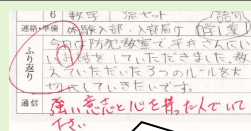 6 数学
連絡・準備 体験入部・部局
ふり返り
今日は防犯教室で平井さんにい
お話をしていただきました。教
えていただいた3つのルールを大
切にしていきたいです。
通信 強い意志と心を持った人でいて
下さい